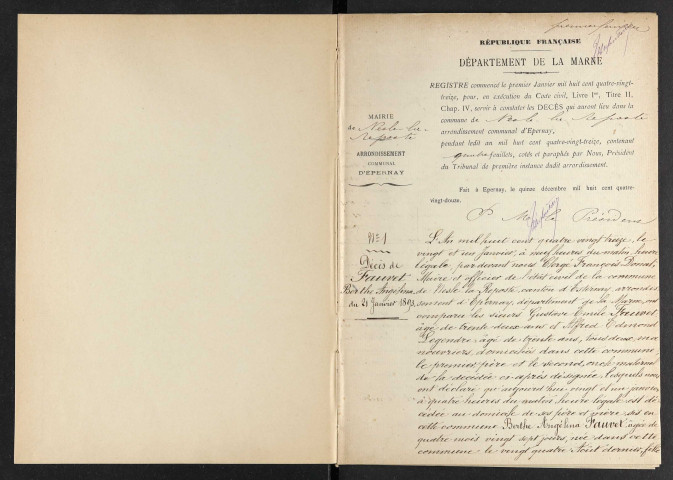 premier feuillet
RÉPUBLIQUE FRANÇAISE
DÉPARTEMENT DE LA MARNE
REGISTRE commencé le premier Janvier mil huit cent quatre-vingt-
treize, pour, en exécution du Code civil, Livre Ier, Titre II,
Chap. IV, servir à constater les DÉCÈS qui auront lieu dans la
commune de Nesle la Reposte
arrondissement communal d'Epernay,
pendant ledit an mil huit cent quatre-vingt-treize, contenant
quatre feuillets, cotés et paraphés par Nous, Président
du Tribunal de première instance dudit arrondissement.
Fait à Epernay, le quinze décembre mil huit cent quatre-
vingt-douze.
Président
MAIRIE
de Nesle-la-
Reposte
ARRONDISSEMENT
COMMUNAL
D'ÉPERNAY
N° 1
Décès de
Fauvet
Berthe Angélina
du 21 Janvier 1893.
L'An mil huit cent quatre vingt treize, le
vingt et un Janvier, à neuf heures du matin heure
légale, par devant nous François
Maire et officier de l'état civil de la commune
de Nesle la Reposte, canton d'Esternay, arrondis-
sement d'Epernay, département de la Marne, ont
comparu les sieurs Gustave Emile Fauvet
âgé de trente deux ans et Alfred Edmond
Legendre âgé de trente ans, tous deux ma-
nouvriers, domiciliés dans cette commune,
le premier, père et le second, oncle maternel
de la décédée ci-après désignée, lesquels nous
ont déclaré qu'aujourd'hui vingt et un janvier
à quatre heures du matin, heure légale est dé-
cédée au domicile de ses père et mère sis en
cette commune Berthe Angélina Fauvet âgée de
quatre mois vingt sept jours, née dans cette
commune le vingt quatre Août dernier, fille